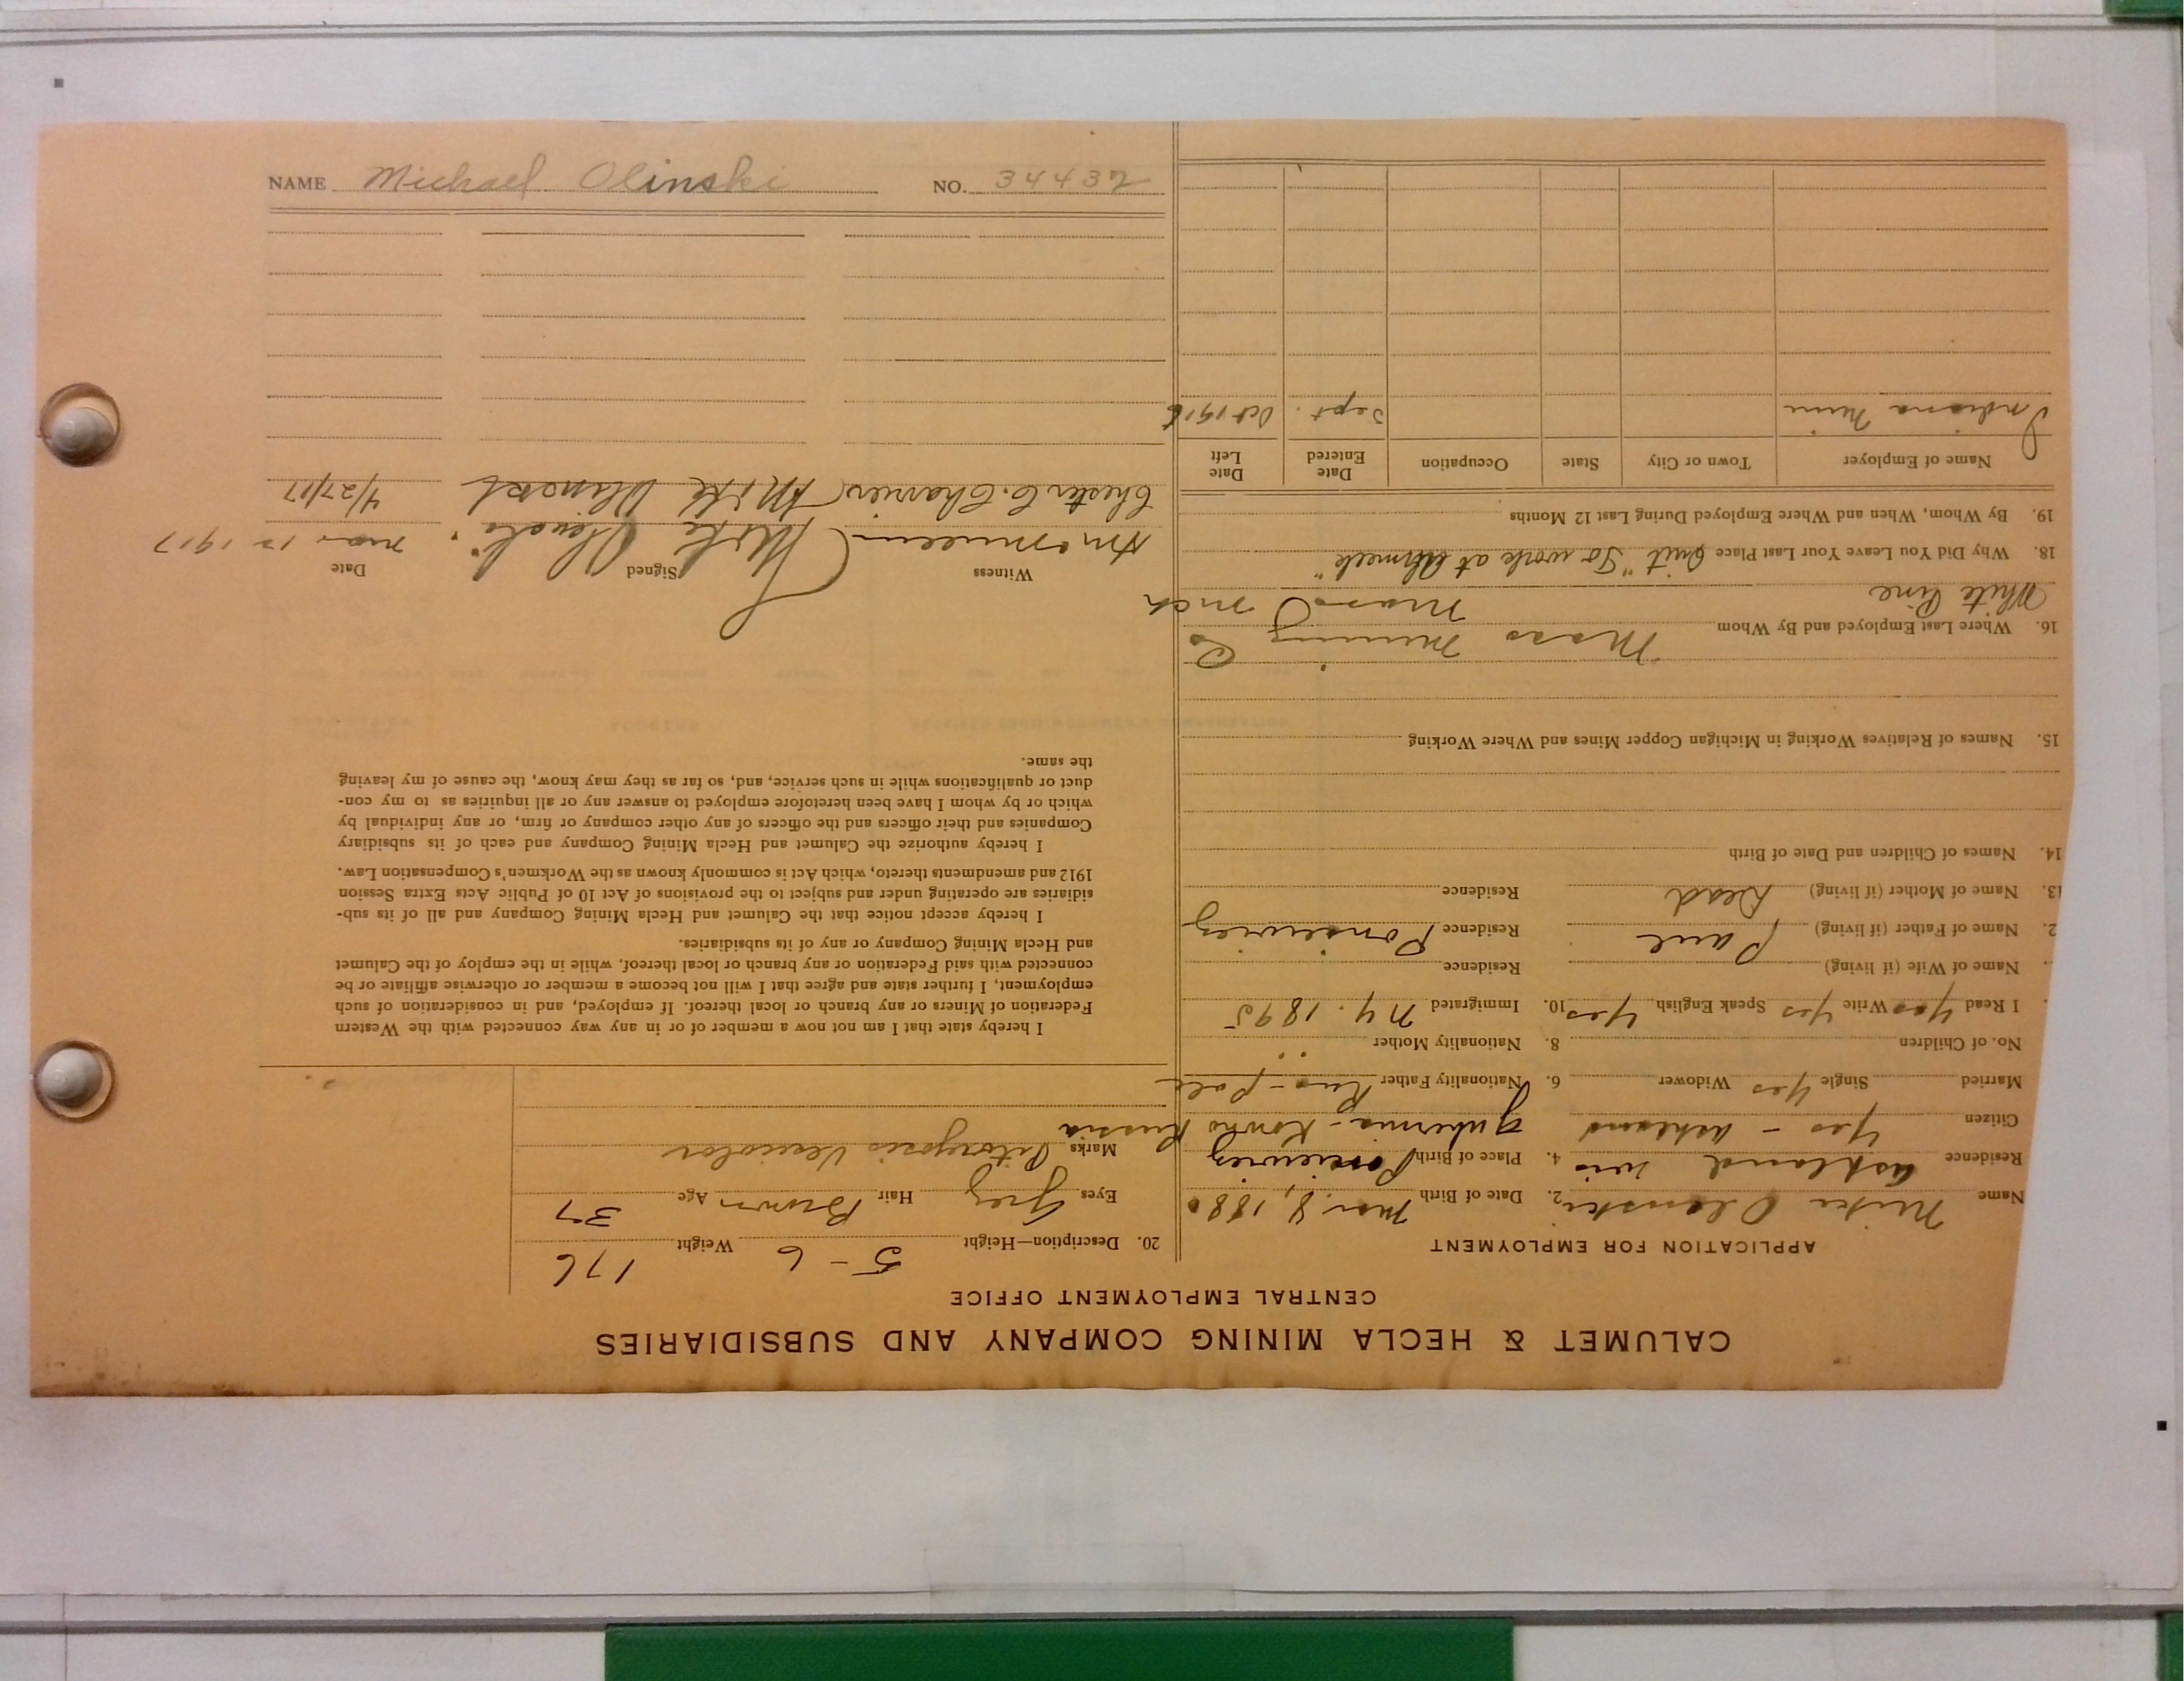 NAME Michael Olinski NO. 34432
CALUMET & HECLA MINING COMPANY AND SUBSIDIARIES
CENTRAL EMPLOYMENT OFFICE
APPLICATION FOR EMPLOYMENT
Name Mike Olenski 2. Date of Birth Mar. 8, 1880
Residence Ashland Wis 4. Place of Birth
Citizen Yes - Ashland Gubernia - Kovno Russia
Married Single Yes Widower 6. Nationality Father Rus - Pole
No. of Children 8. Nationality Mother " "
I Read Yes Write Yes Speak English Yes 10. Immigrated N.Y. 1895
Name of Wife (if living) Residence
2. Name of Father (if living) Paul Residence Ponsiewiez
13. Name of Mother (if living) Dead Residence
14. Names of Children and Date of Birth
15. Names of Relatives Working in Michigan Copper Mines and Where Working
16. Where Last Employed and By Whom Mass Mining Co
White Pine Mass Mch
18. Why Did You Leave Your Last Place Quit "To work at Ahmeek"
19. By Whom, When and Where Employed During Last 12 Months
Name of Employer Town or City State Occupation Date Entered Date Left
Indiana Mine Sept. Oct 1916
20. Description—Height 5-6 Weight 176
Eyes Grey Hair Brown Age 37
Marks
I hereby state that I am not now a member of or in any way connected with the Western
Federation of Miners or any branch or local thereof. If employed, and in consideration of such
employment, I further state and agree that I will not become a member or otherwise affiliate or be
connected with said Federation or any branch or local thereof, while in the employ of the Calumet
and Hecla Mining Company or any of its subsidiaries.
I hereby accept notice that the Calumet and Hecla Mining Company and all of its sub-
sidiaries are operating under and subject to the provisions of Act 10 of Public Acts Extra Session
1912 and amendments thereto, which Act is commonly known as the Workmen's Compensation Law.
I hereby authorize the Calumet and Hecla Mining Company and each of its subsidiary
Companies and their officers and the officers of any other company or firm, or any individual by
which or by whom I have been heretofore employed to answer any or all inquiries as to my con-
duct or qualifications while in such service, and, so far as they may know, the cause of my leaving
the same.
Witness Signed Date
Mike Mar 12 1917
Chester C. Mike Olinski 4/27/17